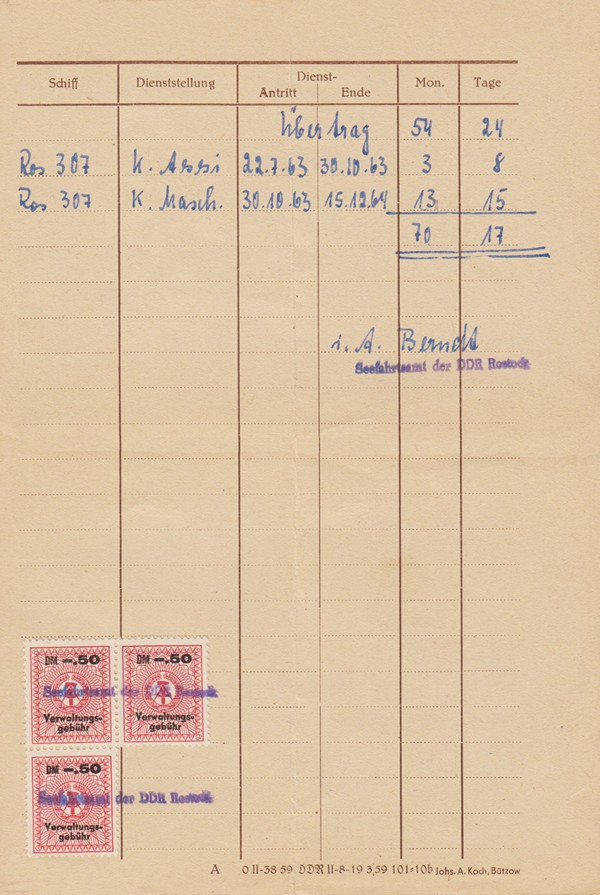 Schiff Dienststellung Dienst- Mon. Tage
Antritt Ende
Übertrag 54 24
Ros 307 K. Assi 22.7.63 30.10.63 3 8
Ros 307 K. Masch. 30.10.63 15.12.64 13 15
70 17
i. A. Berndt
Seefahrtsamt der DDR Rostock
DM -.50 DM -.50
Seefahrtsamt der DDR Rostock
Verwaltungs- Verwaltungs-
gebühr gebühr
DM -.50
Seefahrtsamt der DDR Rostock
Verwaltungs-
gebühr
A O II-38 59 DDR II-8-19 3/59 101-10b Johs. A. Koch, Bützow